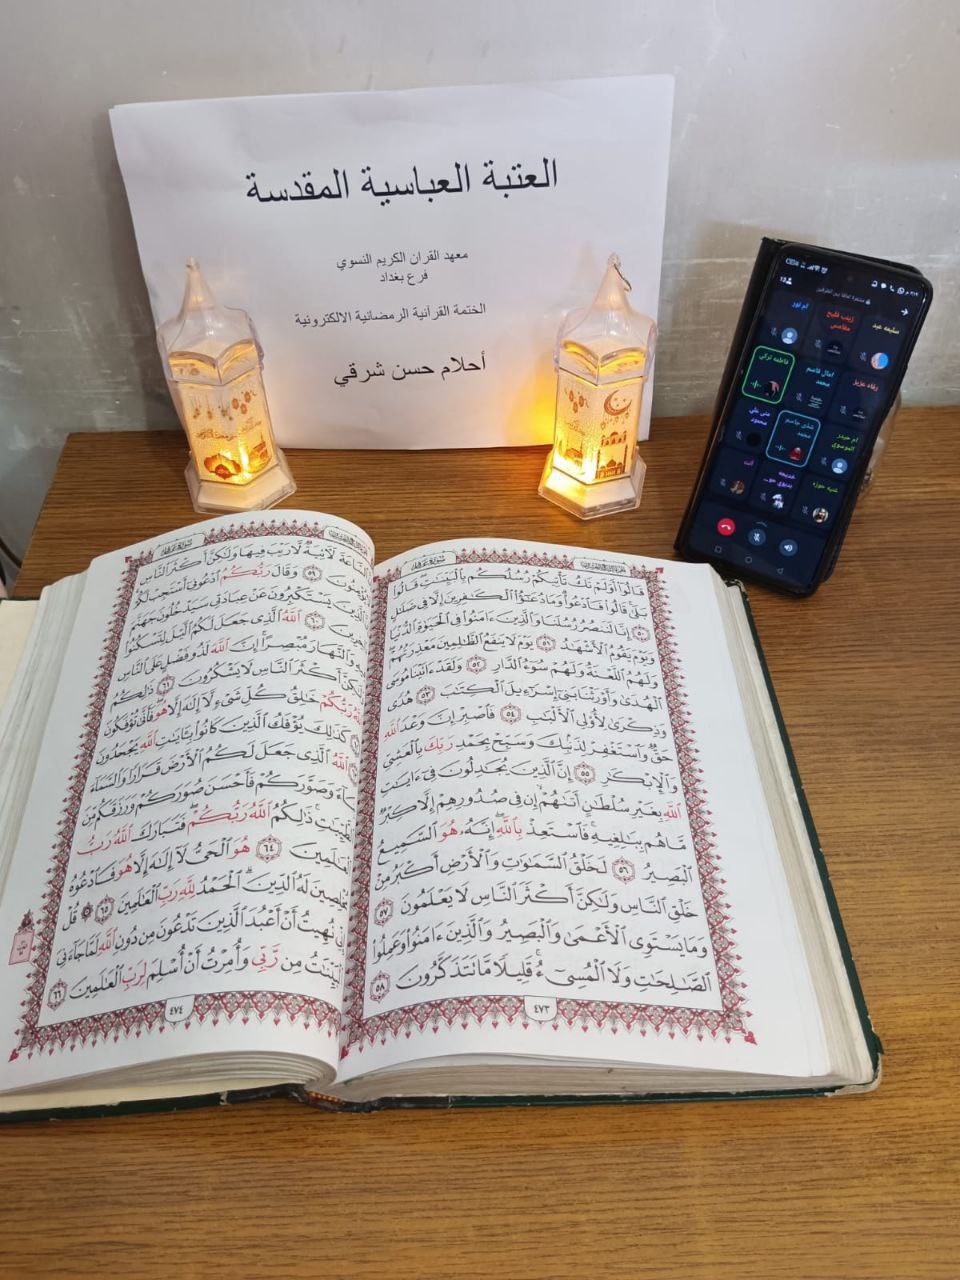 العتبة العباسية المقدسة
معهد القران الكريم النسوي
فرع بغداد
الختمة القرآنية الرمضانية الالكترونية
أحلام حسن شرقي
ام نور
زينب فليح
سليمه عبد
فاطمه تركي
امال قاسم محمد
وفاء عزيز
منى علي محمود
شذى جاسم محمد
ام حيدر الموسوي
أنت
خديجه
قَالُوٓا۟ أَوَلَمْ تَكُ تَأْتِيكُمْ رُسُلُكُم بِٱلْبَيِّنَٰتِ قَالُوا۟
بَلَىٰ قَالُوا۟ فَٱدْعُوا۟ وَمَا دُعَٰٓؤُا۟ ٱلْكَٰفِرِينَ إِلَّا فِى ضَلَٰلٍ
٥٠ إِنَّا لَنَنصُرُ رُسُلَنَا وَٱلَّذِينَ ءَامَنُوا۟ فِى ٱلْحَيَوٰةِ ٱلدُّنْيَا
وَيَوْمَ يَقُومُ ٱلْأَشْهَٰدُ ٥١ يَوْمَ لَا يَنفَعُ ٱلظَّٰلِمِينَ مَعْذِرَتُهُمْ
وَلَهُمُ ٱللَّعْنَةُ وَلَهُمْ سُوٓءُ ٱلدَّارِ ٥٢ وَلَقَدْ ءَاتَيْنَا مُوسَى
ٱلْهُدَىٰ وَأَوْرَثْنَا بَنِىٓ إِسْرَٰٓءِيلَ ٱلْكِتَٰبَ ٥٣ هُدًى
وَذِكْرَىٰ لِأُو۟لِى ٱلْأَلْبَٰبِ ٥٤ فَٱصْبِرْ إِنَّ وَعْدَ ٱللَّهِ
حَقٌّ وَٱسْتَغْفِرْ لِذَنۢبِكَ وَسَبِّحْ بِحَمْدِ رَبِّكَ بِٱلْعَشِىِّ
وَٱلْإِبْكَٰرِ ٥٥ إِنَّ ٱلَّذِينَ يُجَٰدِلُونَ فِىٓ ءَايَٰتِ
ٱللَّهِ بِغَيْرِ سُلْطَٰنٍ أَتَىٰهُمْ إِن فِى صُدُورِهِمْ إِلَّا كِبْرٌ
مَّا هُم بِبَٰلِغِيهِ فَٱسْتَعِذْ بِٱللَّهِ إِنَّهُۥ هُوَ ٱلسَّمِيعُ
ٱلْبَصِيرُ ٥٦ لَخَلْقُ ٱلسَّمَٰوَٰتِ وَٱلْأَرْضِ أَكْبَرُ مِنْ
خَلْقِ ٱلنَّاسِ وَلَٰكِنَّ أَكْثَرَ ٱلنَّاسِ لَا يَعْلَمُونَ ٥٧
وَمَا يَسْتَوِى ٱلْأَعْمَىٰ وَٱلْبَصِيرُ وَٱلَّذِينَ ءَامَنُوا۟ وَعَمِلُوا۟
ٱلصَّٰلِحَٰتِ وَلَا ٱلْمُسِىٓءُ قَلِيلًا مَّا تَتَذَكَّرُونَ ٥٨
٤٧٣
لَءَاتِيَةٌ لَّا رَيْبَ فِيهَا وَلَٰكِنَّ أَكْثَرَ ٱلنَّاسِ
٥٩ وَقَالَ رَبُّكُمُ ٱدْعُونِىٓ أَسْتَجِبْ لَكُمْ
يَسْتَكْبِرُونَ عَنْ عِبَادَتِى سَيَدْخُلُونَ جَهَنَّمَ
٦٠ ٱللَّهُ ٱلَّذِى جَعَلَ لَكُمُ ٱلَّيْلَ لِتَسْكُنُوا۟
وَٱلنَّهَارَ مُبْصِرًا إِنَّ ٱللَّهَ لَذُو فَضْلٍ عَلَى ٱلنَّاسِ
أَكْثَرَ ٱلنَّاسِ لَا يَشْكُرُونَ ٦١ ذَٰلِكُمُ
رَبُّكُمْ خَٰلِقُ كُلِّ شَىْءٍ لَّآ إِلَٰهَ إِلَّا هُوَ فَأَنَّىٰ تُؤْفَكُونَ
كَذَٰلِكَ يُؤْفَكُ ٱلَّذِينَ كَانُوا۟ بِـَٔايَٰتِ ٱللَّهِ يَجْحَدُونَ
ٱللَّهُ ٱلَّذِى جَعَلَ لَكُمُ ٱلْأَرْضَ قَرَارًا وَٱلسَّمَآءَ
وَصَوَّرَكُمْ فَأَحْسَنَ صُوَرَكُمْ وَرَزَقَكُم مِّنَ
ذَٰلِكُمُ ٱللَّهُ رَبُّكُمْ فَتَبَارَكَ ٱللَّهُ رَبُّ
ٱلْعَٰلَمِينَ ٦٤ هُوَ ٱلْحَىُّ لَآ إِلَٰهَ إِلَّا هُوَ فَٱدْعُوهُ
مُخْلِصِينَ لَهُ ٱلدِّينَ ٱلْحَمْدُ لِلَّهِ رَبِّ ٱلْعَٰلَمِينَ ٦٥ قُلْ
إِنِّى نُهِيتُ أَنْ أَعْبُدَ ٱلَّذِينَ تَدْعُونَ مِن دُونِ ٱللَّهِ لَمَّا جَآءَنِىَ
ٱلْبَيِّنَٰتُ مِن رَّبِّى وَأُمِرْتُ أَنْ أُسْلِمَ لِرَبِّ ٱلْعَٰلَمِينَ ٦٦
٤٧٤